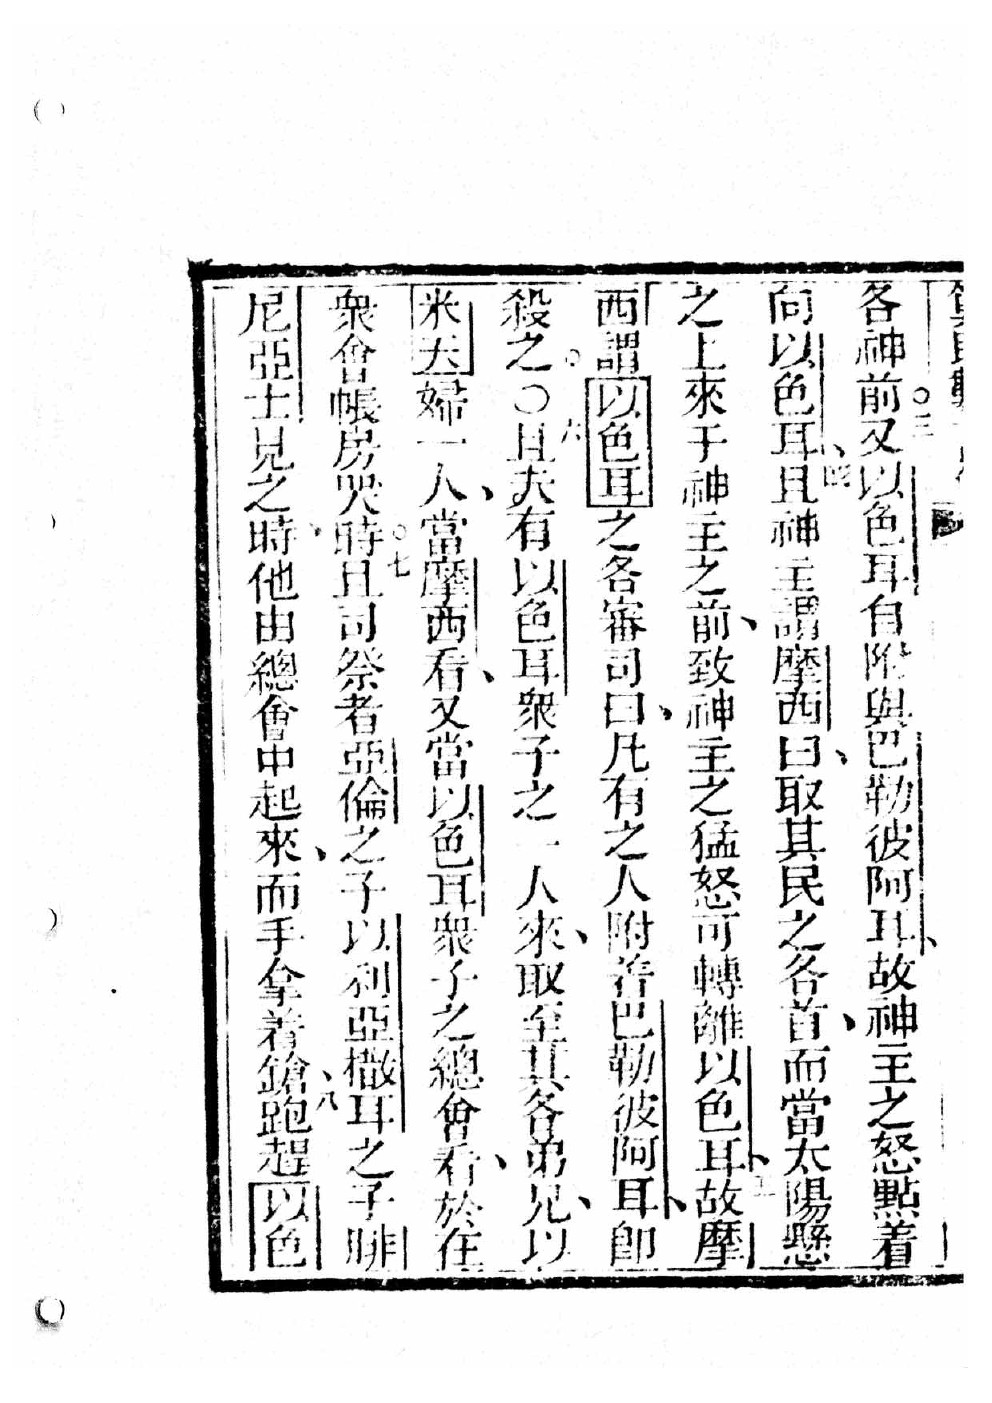 各神前又以色耳自附與巴勒彼阿耳故神主之怒點着
向以色耳且神主謂摩西曰取其民之各首而當太陽懸
之上來于神主之前致神主之猛怒可轉離以色耳故摩
西謂以色耳之各審司曰凡有之人附着巴勒彼阿耳卽
殺之〇且夫有以色耳衆子之一人來取至其各弟兄以
米天婦一人當摩西看又當以色耳衆子之總會看於在
衆會帳房哭時且司祭者亞倫之子以利亞撒耳之子腓
尼亞士見之時他由總會中起來而手拿着鎗跑趕以色